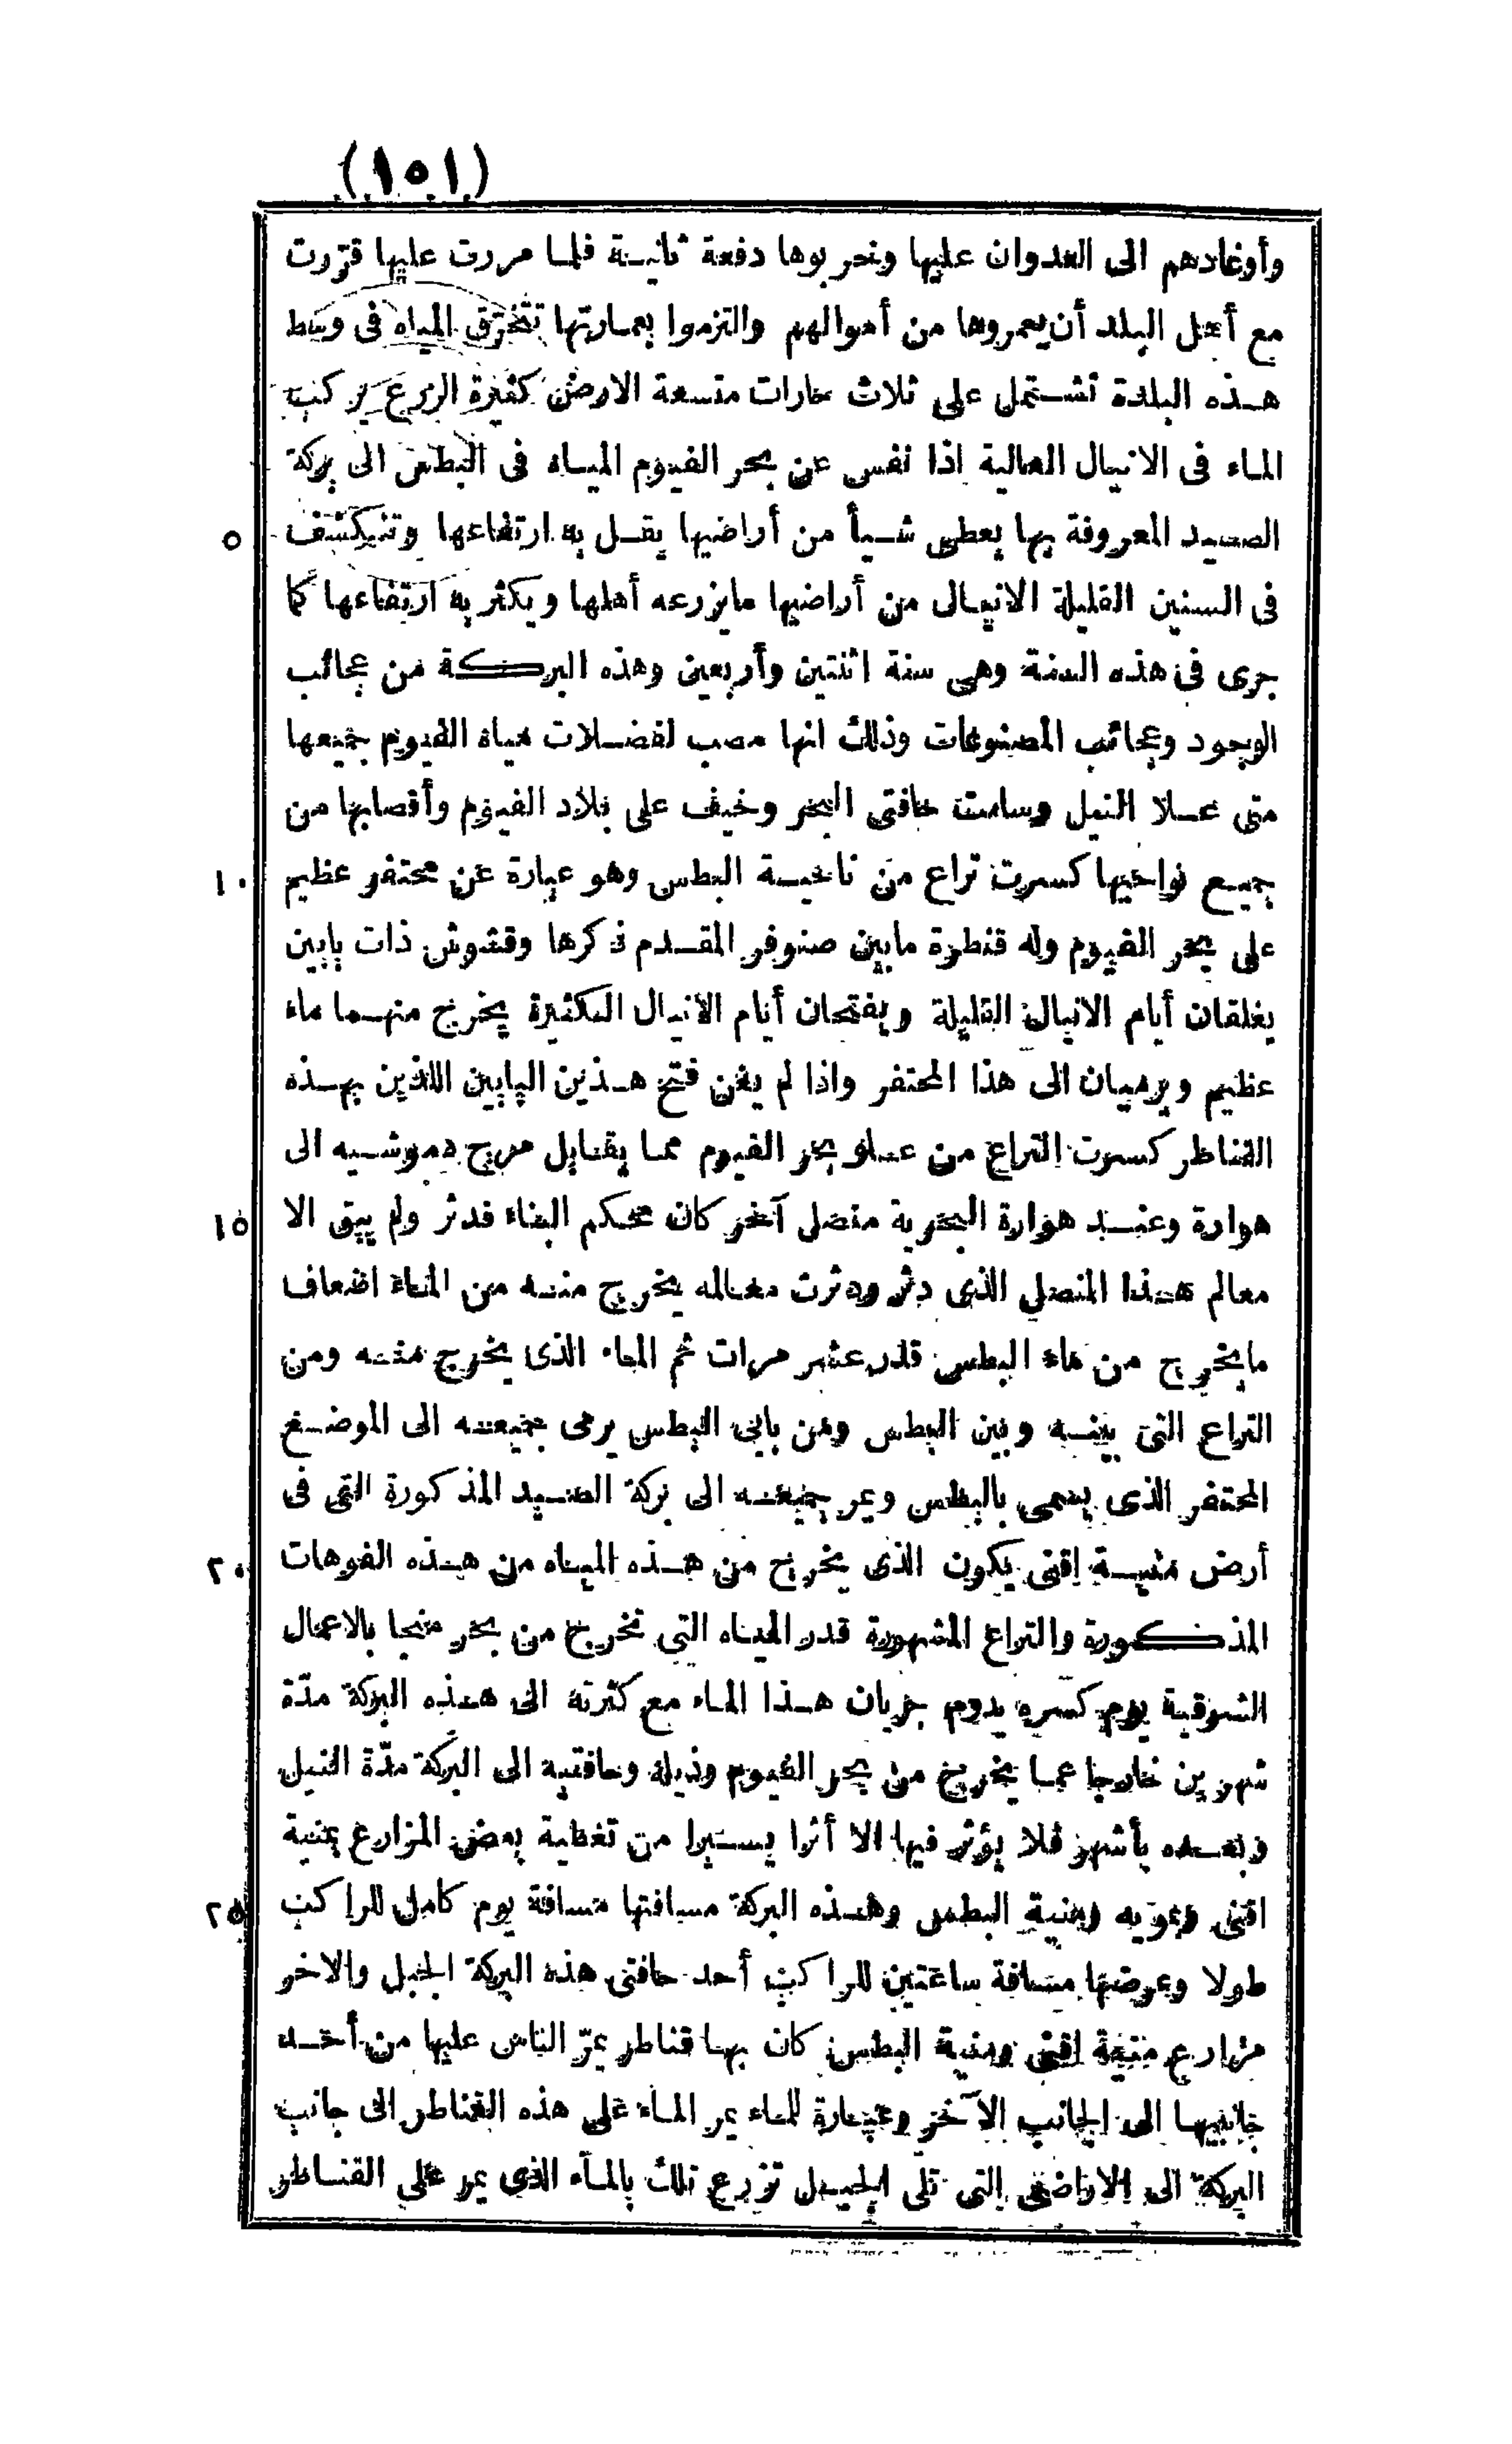 (١٥١)
وأوغادهم الى العدوان عليها وتحربوها دفعة ثانيـة فلما مررت عليها قرّرت
مع أهل البلد أن يعمروها من أموالهم والتزموا بعمارتها تتخرّق المياه فى وسط
هـذه البلدة تشـتمل على ثلاث حارات متسعة الارض كثيرة الزرع يركب
الماء فى الانيال العالية اذا نفس عن بحر الفيوم المياه فى البطس الى بركة
٥ الصيد المعروفة بها يعطى شـيأ من أراضيها يقـل به ارتفاعها وتنكشف
فى السنين القليلة الانيال من أراضيها مايزرعه أهلها ويكثر به ارتفاعها كما
جرى فى هذه السنة وهى سنة اثنتين وأربعين وهذه البركة من عجائب
الوجود وعجائب المصنوعات وذلك انها مصب لفضـلات مياه الفيوم جميعها
متى عـلا النيل وسامت حافتى البحر وخيف على بلاد الفيوم وأقصابها من
١٠ جميـع نواحيها كسرت تراع من ناحيـة البطس وهو عبارة عن محتفر عظيم
على بحر الفيوم وله قنطرة مابين صنوفر المقـدم ذكرها وقشوش ذات بابين
يغلقان أيام الانيال القليلة ويفتحان أيام الانيال الكثيرة يخرج منهـما ماء
عظيم ويرميان الى هذا المحتفر واذا لم يغن فتح هـذين البابين اللذين بهـذه
القناطر كسرت التراع من عـلو بحر الفيوم مما يقابل مرج دموشـيه الى
١٥ هوارة وعنـد هوارة البحرية منصلى آخر كان محكم البناء فدثر ولم يبق الا
معالم هـذا المنصلى الذى دثر ودثرت معالمه يخرج منـه من الماء اضعاف
مايخرج من ماء البطس قدر عشر مرات ثم الماء الذى يخرج منـه ومن
التراع التى بينـه وبين البطس ومن بابى البطس يرمى جميعـه الى الموضـع
المحتفر الذى يسمى بالبطس ويمر جميعـه الى بركة الصـيد المذكورة التى فى
٢٠ أرض منيـة اقنى يكون الذى يخرج من هـذه المياه من هـذه الفوهات
المذكورة والتراع المشهورة قدر المياه التى تخرج من بحر منجا بالاعمال
الشرقية يوم كسره يدوم جريان هـذا الماء مع كثرته الى هـذه البركة مدّة
شهرين خارجا عما يخرج من بحر الفيوم وذيله وحافتيه الى البركة مدّة النيل
وبعـده بأشهر فلا يؤثر فيها الا أثرا يسـيرا من تغطية بعض المزارع بمنية
٢٥ اقنى وبمويه ومنية البطس وهـذه البركة مسافتها مسافة يوم كامل للراكب
طولا وعرضها مسافة ساعتين للراكب أحد حافتى هذه البركة الجبل والاخر
مزارع منية اقنى ومنية البطس كان بها قناطر يمرّ الناس عليها من أحـد
جانبيها الى الجانب الآخر وعبارة للماء يمر الماء على هذه القناطر الى جانب
البركة الى الاراضى التى تلى الجبـل تزرع تلك بالماء الذى يمر على القناطر